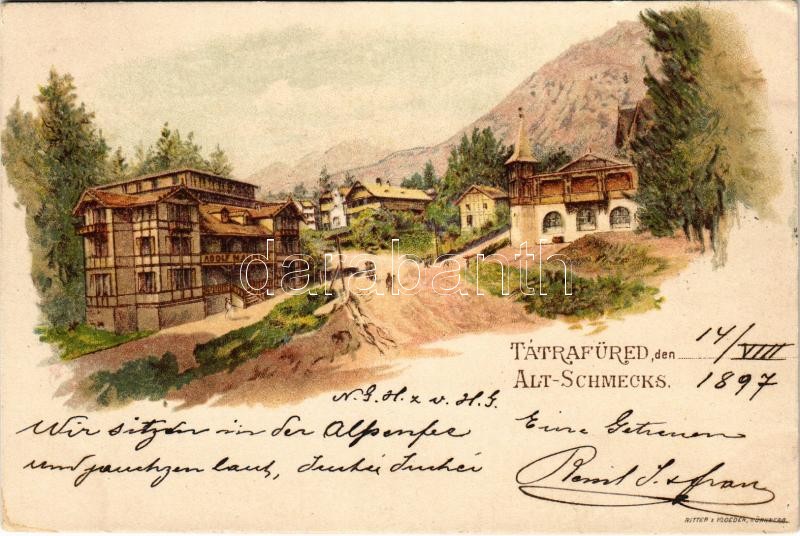 ADOLF
darabanth
TÁTRAFÜRED, den 14/VIII
ALT-SCHMECKS. 1897
N. G. H. z v. H. G.
Wir sitzen in der Alpenfee
und jauchzen laut, Juchei Juchei
Eure Getreuen
RITTER & KLOEDEN, NÜRNBERG.